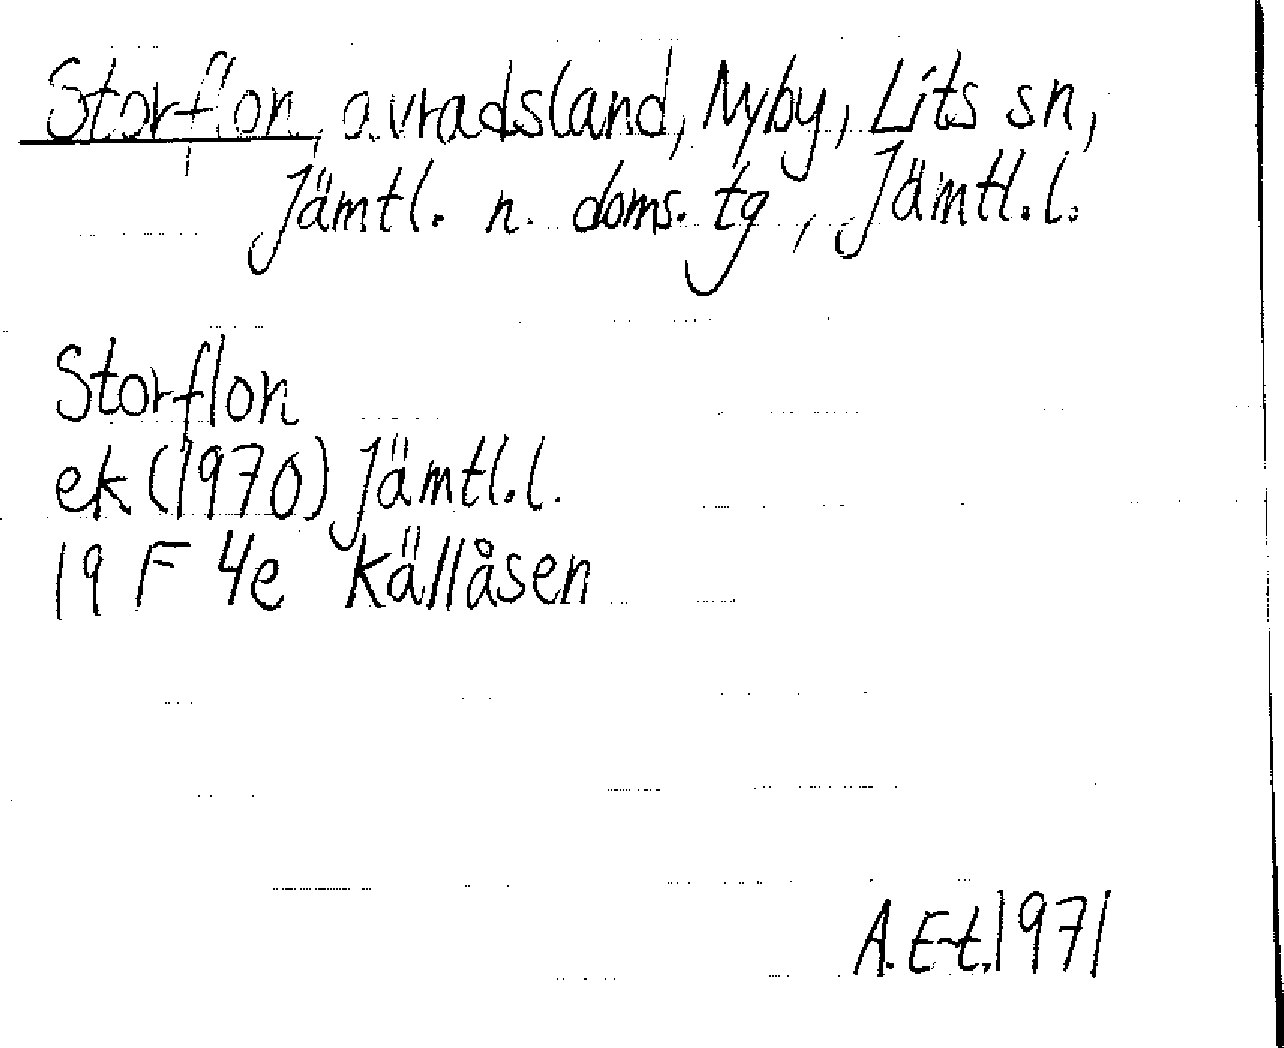 Storflon, avradsland, Nyby, Lits sn,
Jämtl. n. doms. tg, Jämtl. l.
Storflon
ek (1970) Jämtl. l.
19 F 4e Källåsen
A. E-t. 1971